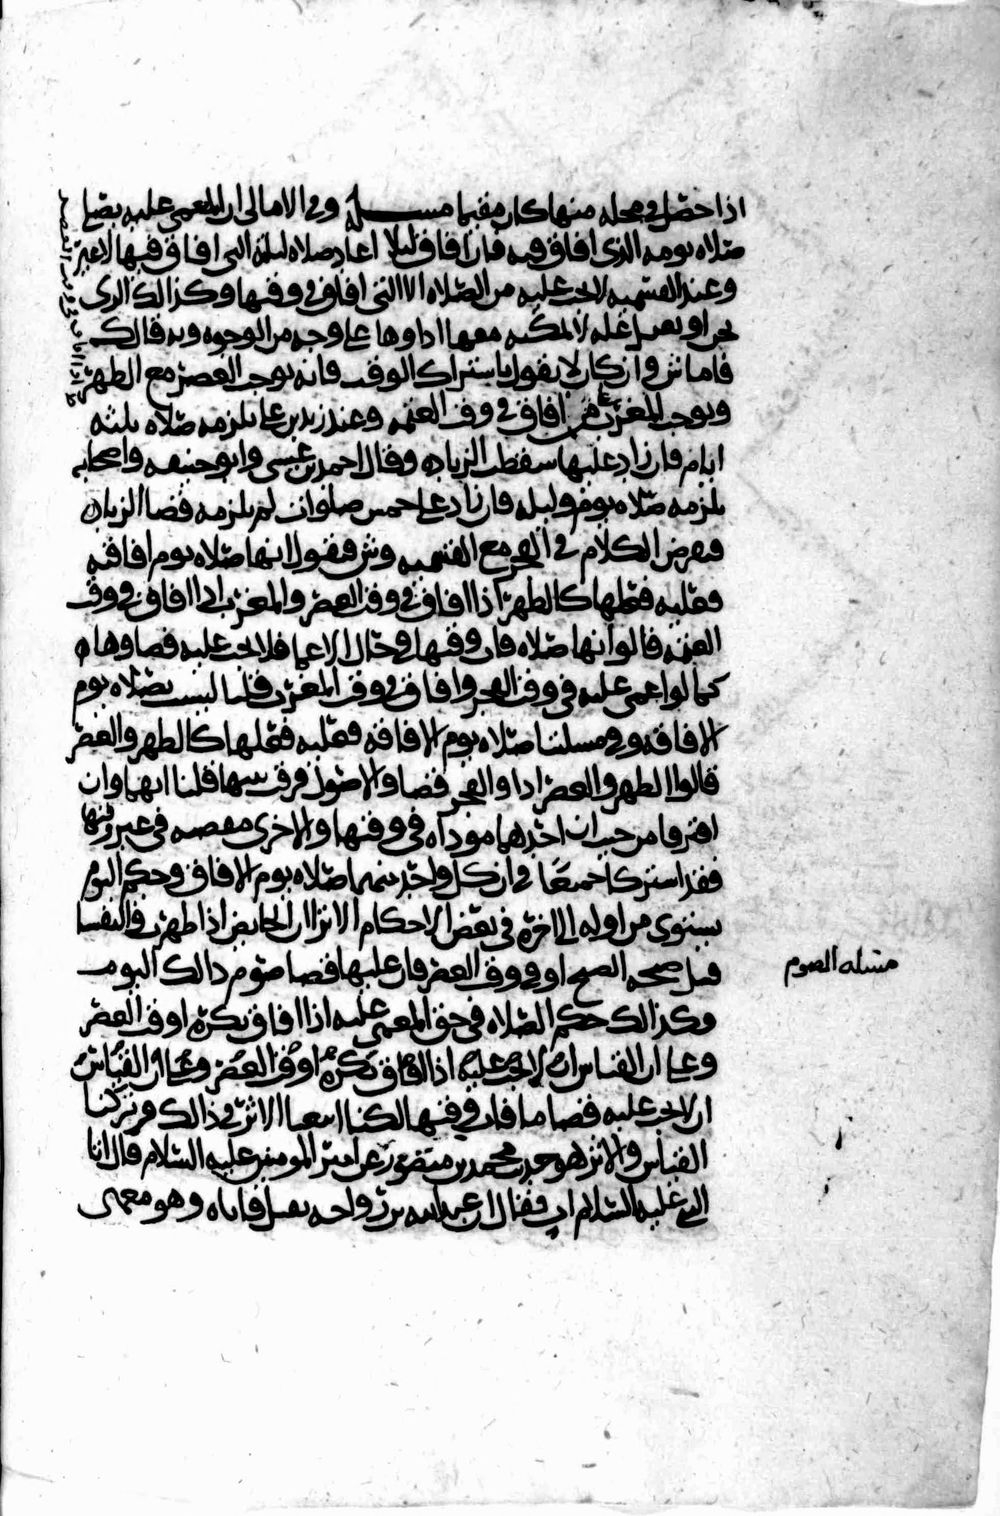 اذا حصل في محله منها كان مقيما مسـله وفي الامالى ان المغمى عليه يصلي
صلاه يومه الذى افاق فيه فان افاق ليلا اعاد صلاه ليلته التى افاق فيها لا غير
وعند القسميه لا يجب عليه من الصلاه الا التى افاق في وقتها وكذالك الذى
يجن او يعتل عله لا يمكنه معها اداوها على وجه من الوجوه وبه قال ك
فاما ش وان كان لا يقول باشتراك الوقت فانه يوجب العصر مع الظهر
ويوجب المغرب افاق في وقت العتمه وعند زيد بن على يلزمه صلاه ثلثه
ايام فان زاد عليها سقطت الزياده وقال احمد بن عيسى وابو حنيفه واصحابه
يلزمه صلاه يوم وليله فان زاد على خمس صلوات لم يلزمه قضا الزياده
فنفرض الكلام في الفجر مع القسميه وش فنقول انها صلاه يوم افاقته
فعليه فعلها كالظهر اذا افاق في وقت العصر والمغرب اذا افاق في وقت
العتمه قالوا انها صلاه فات وقتها في حال الاغما فلا يجب عليه قضاوها
كما لو اغمى عليه في وقت الفجر وافاق في وقت المغرب قلنا ليست بصلاه يوم
الافاقه وفي مسلتنا صلاه يوم الافاقه فعليه فعلها كالظهر والعصر
قالوا الظهر والعصر ادا والفجر قضا والاصول فرقت بينها قلنا انهما وان
افترقا من حيث ان احدهما موداه في وقتها والاخرى مقضيه في غير وقتها
فقد اشتركا جميعا في ان كل واحد منهما صلاه يوم الافاق وحكم اليوم
يستوى من اوله الى اخره في بعض الاحكام الا ترا ان الحايض اذا طهرت والنفسا
قبل صحه الصبح او في وقت العصر فان عليها قضا صوم ذالك اليوم
وكذالك حكم الصلاه في حق المغمى عليه اذا افاق بكره او وقت العصر
وعلى ان القياس ان لا يجب عليه اذا افاق بكره او وقت العصر وعلى ان القياس
ان لا يجب عليه قضا ما فات وقتها لكنا اتبعنا الاثر في ذالك وتركنا
القياس والاثر هو حديث محمد بن منصور عن امير المومنين عليه السلام قال اتا
النبي عليه السلام ات فقال ان عبدالله بن رواحه ثقيل فاتاه وهو مغمى
مسله الصوم